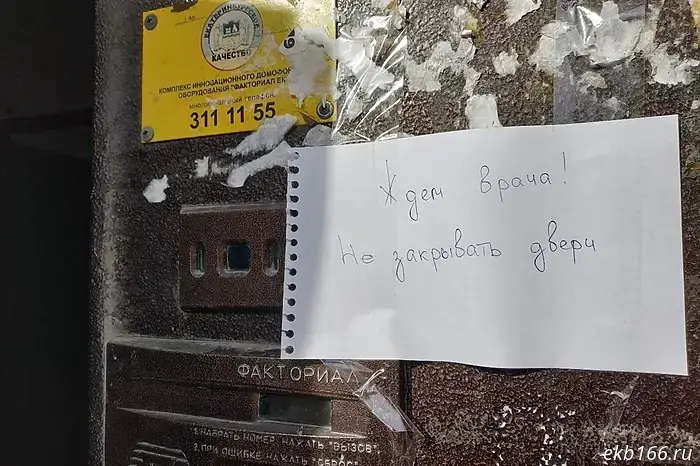 ЕКАТЕРИНБУРГСКОЕ
КАЧЕСТВО
КОМПЛЕКС ИННОВАЦИОННОГО ДОМОФОН
ОБОРУДОВАНИЯ "ФАКТОРИАЛ ЕК
многоканальный телефон
311 11 55
Ждем врача!
Не закрывать двери
ФАКТОРИАЛ
1. НАБРАТЬ НОМЕР НАЖАТЬ "ВЫЗОВ"
2. ПРИ ОШИБКЕ НАЖАТЬ "СБРОС"
ekb166.ru